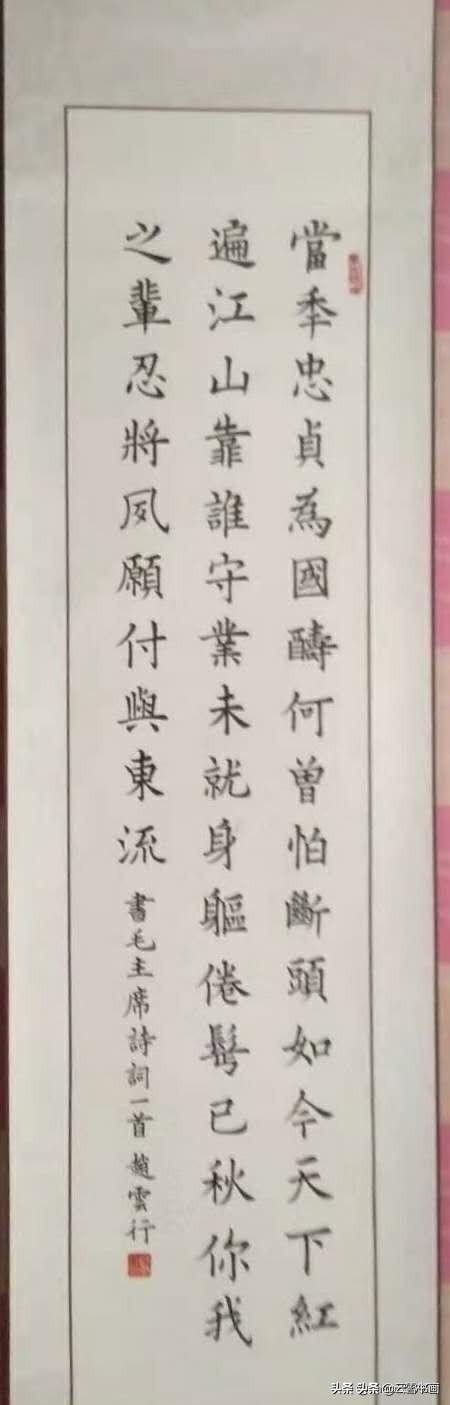 當秊忠貞為國酬何曾怕斷頭如今天下紅
遍江山靠誰守業未就身軀倦鬢已秋你我
之輩忍將夙願付與東流
書毛主席詩詞一首趙雲行
头条 头条@云雪书画